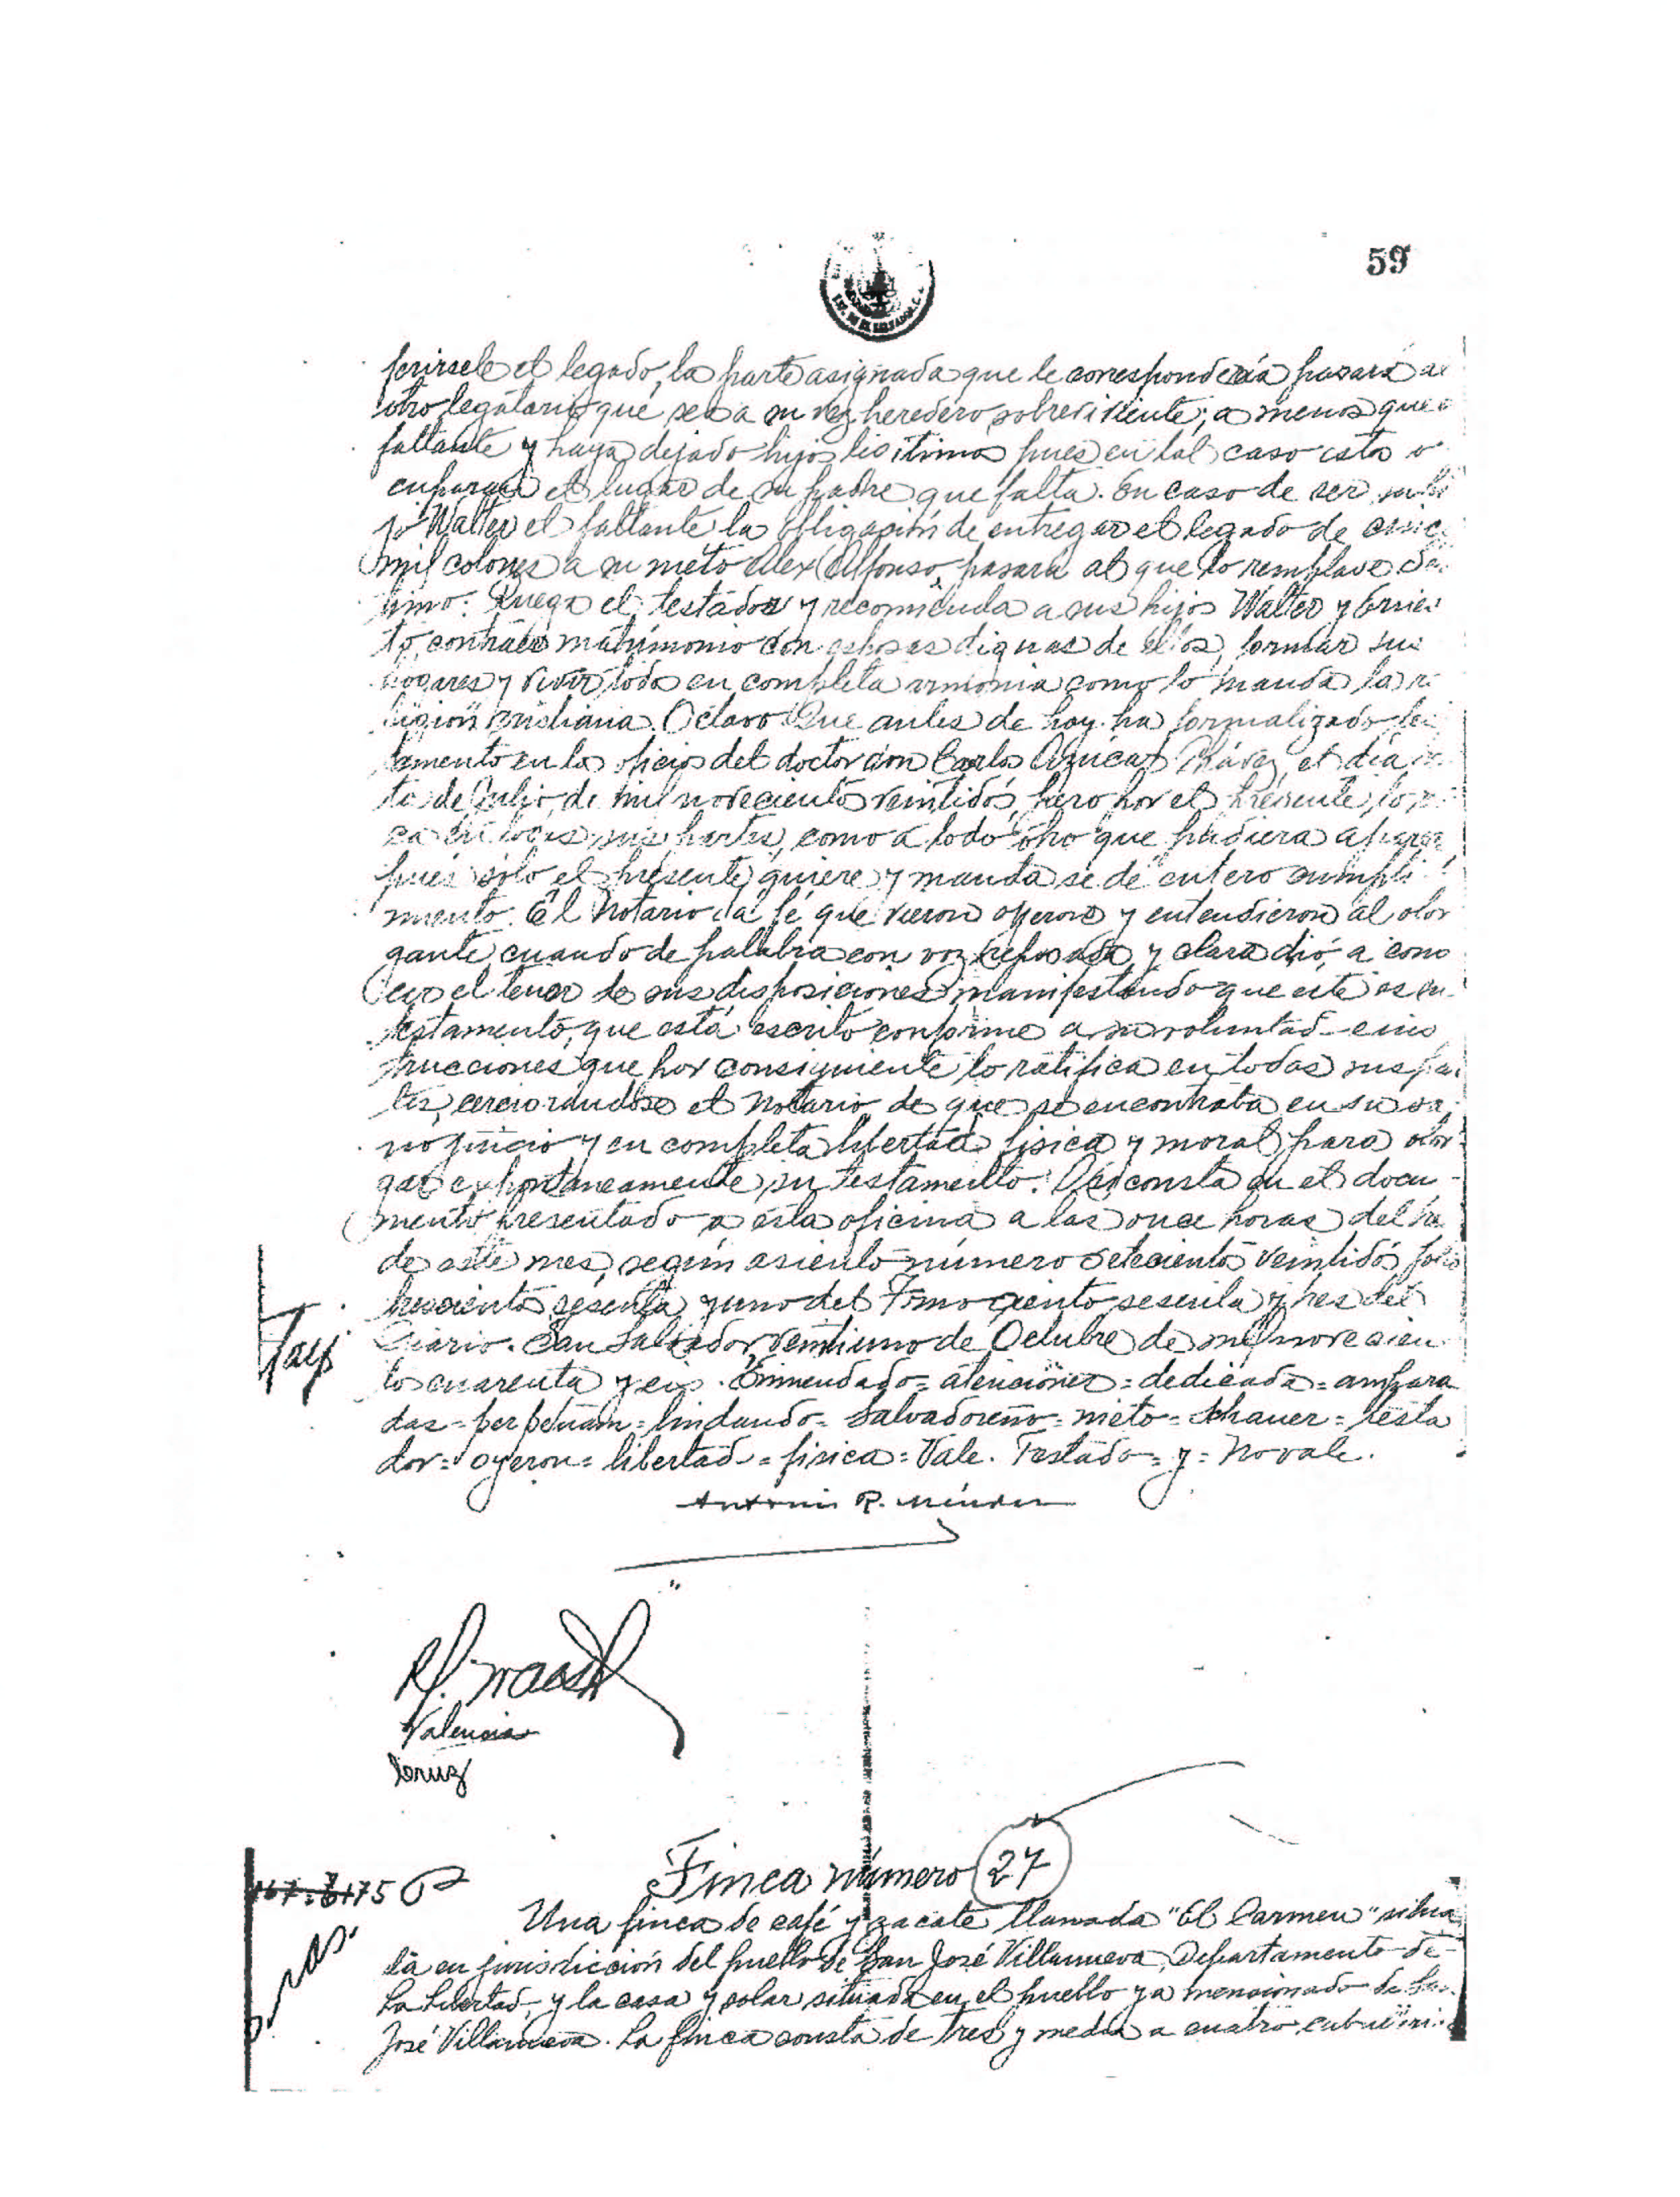 59
ferirsele el legado, la parte asignada que le correspondería pasará al
otro legatario que sea a su vez heredero sobreviviente; a menos que
faltante y haya dejado hijos legítimos pues en tal caso esto o
cuparan el lugar de su padre que falta. En caso de ser su hi
jo Walter el faltante la obligación de entregar el legado de cinco
mil colones a su nieto Alex Alfonso, pasará al que lo remplace. Sé
timo: Ruega el testador y recomienda a sus hijos Walter y Ernes
to, contraer matrimonio con esposas dignas de ellos, formar sus
hogares y vivir todos en completa armonía como lo manda la re
ligión cristiana. Octavo: Que antes de hoy ha formalizado tes
tamento en los oficios del doctor don Carlos Azúcar Chávez, el día
de Julio de mil novecientos veintidós, pero por el presente lo
ca en todas sus partes, como a todo otro que pudiera aparecer
pues sólo el presente quiere y manda se dé entero cumpli
miento. El Notario da fé que vieron oyeron y entendieron al otor
gante cuando de palabra con voz reposada y clara dió a cono
cer el tenor de sus disposiciones manifestando que este es su
testamento, que está escrito conforme a su voluntad e ins
trucciones que por consiguiente lo ratifica en todas sus par
tes, cerciorandose el Notario de que se encontraba en su sa
no juicio y en completa libertad fisica y moral para otor
gar expontaneamente su testamento. Así consta en el docu
mento presentado a esta oficina a las once horas del
de este mes, según asiento número setecientos veintidós folio
trescientos sesenta y uno del Tomo ciento sesenta y tres del
Diario. San Salvador, veintiuno de Octubre de mil novecien
tos cuarenta y seis. Enmendado= atenciones= dedicada= ampara
das= perpetuam= lindando= Salvadoreño= nieto= Schauer= testa
dor= oyeron= libertad= fisica= Vale. Testado= y= No vale.
Antonio R. Méndez
Valencia
Cruz
Finca número 27
Una finca de café y zacate llamada "El Carmen" situa
da en jurisdicción del pueblo de San José Villanueva, Departamento de
La Libertad, y la casa y solar situada en el pueblo ya mencionado de San
José Villanueva. La finca consta de tres y media a cuatro